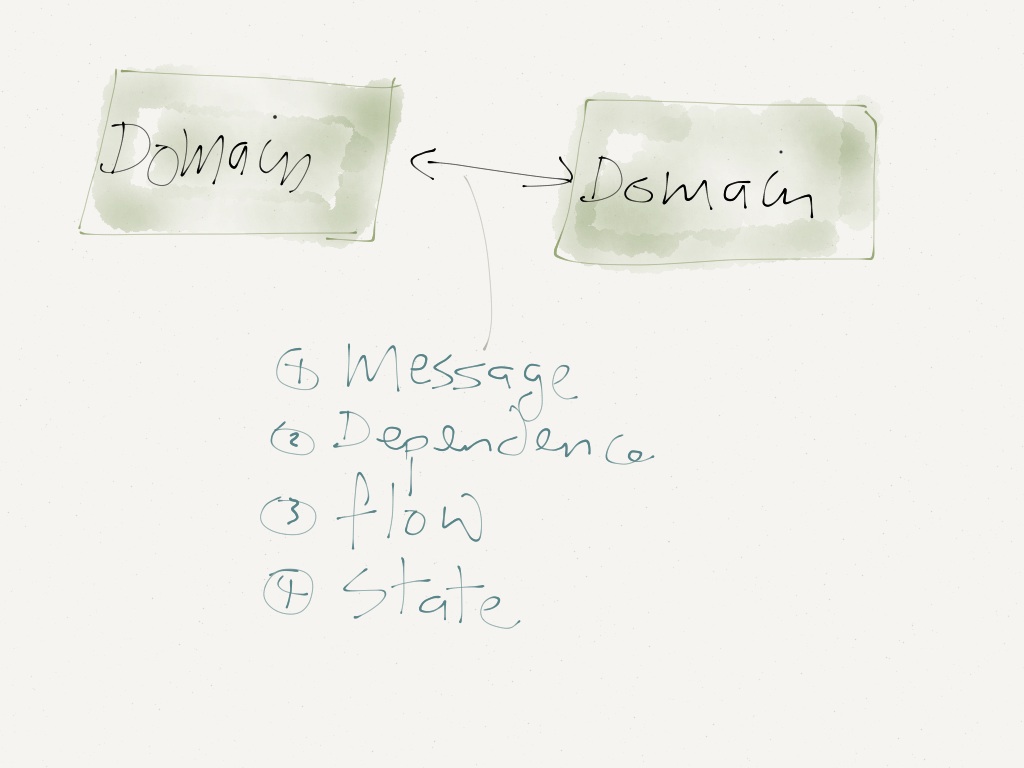 Domain
Domain
① Message
② Dependence
③ flow
④ State